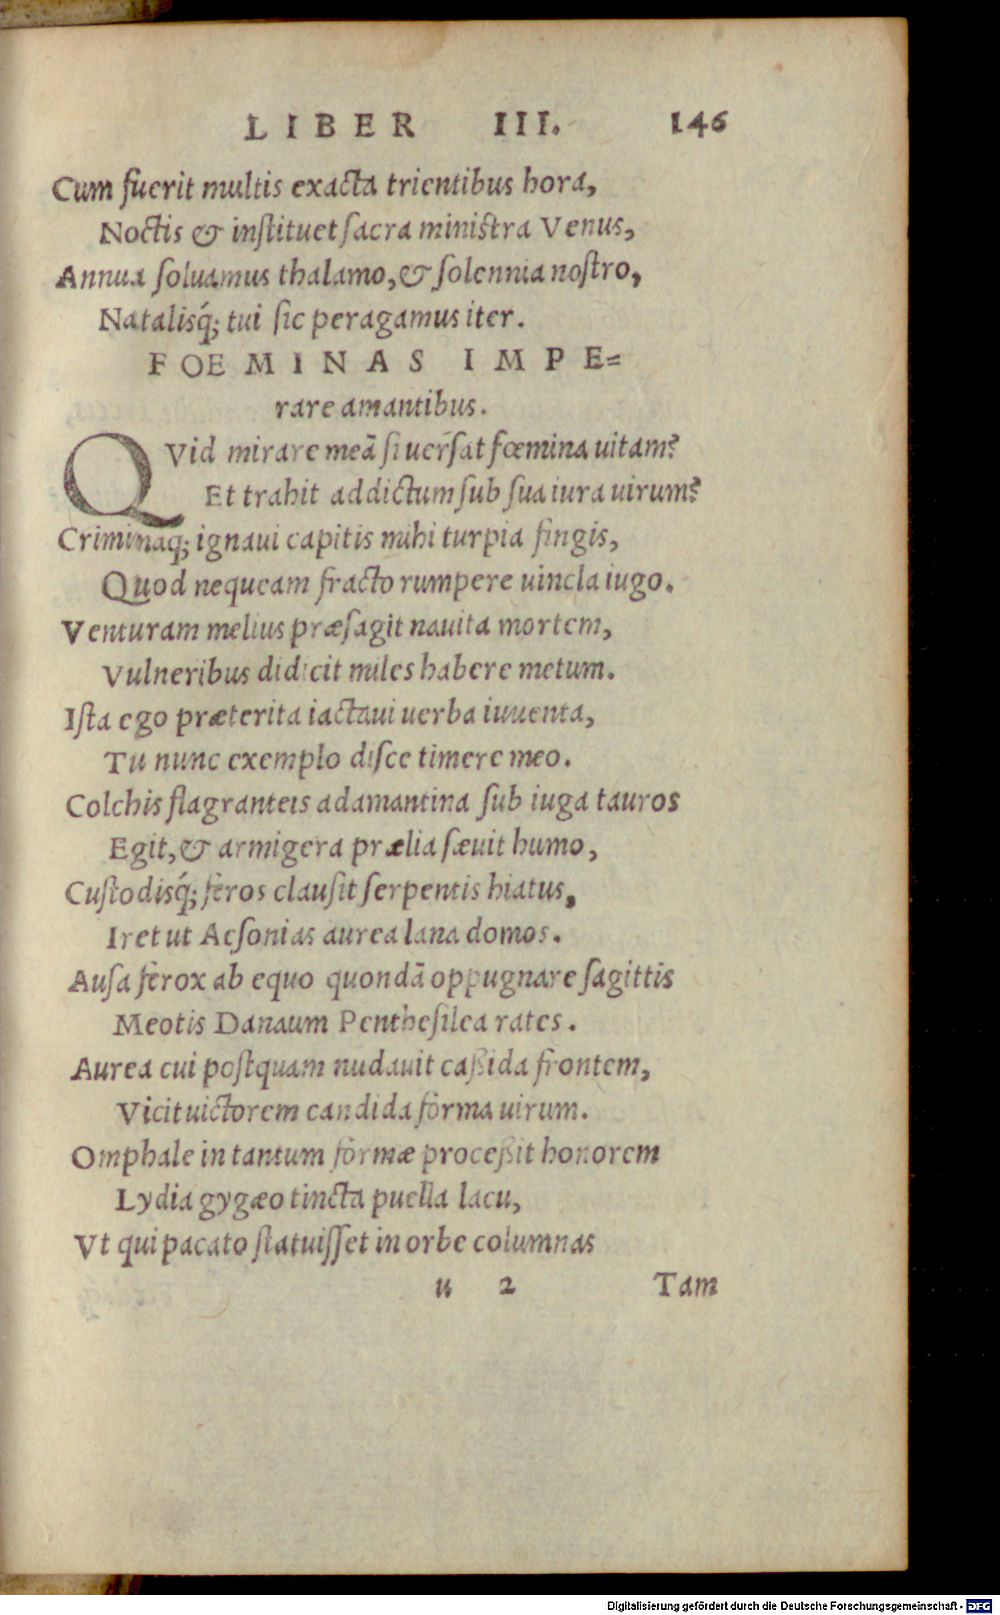 LIBER III. 146
Cum fuerit multis exacta trientibus hora,
Noctis & instituet sacra ministra Venus,
Annua soluamus thalamo, & solennia nostro,
Natalisq́; tui sic peragamus iter.
FOEMINAS IMPE=
rare amantibus.
QVid mirare meā si uersat fœmina uitam?
Et trahit addictum sub sua iura uirum?
Criminaq́; ignaui capitis mihi turpia fingis,
Quod nequeam fracto rumpere uincla iugo.
Venturam melius præsagit nauita mortem,
Vulneribus didicit miles habere metum.
Ista ego præterita iactaui uerba iuuenta,
Tu nunc exemplo disce timere meo.
Colchis flagranteis adamantina sub iuga tauros
Egit, & armigera prælia sæuit humo,
Custodisq́; feros clausit serpentis hiatus,
Iret ut Aesonias aurea lana domos.
Ausa ferox ab equo quondā oppugnare sagittis
Meotis Danaum Penthesilea rates.
Aurea cui postquam nudauit caßida frontem,
Vicit uictorem candida forma uirum.
Omphale in tantum formæ proceßit honorem
Lydia gygæo tincta puella lacu,
Vt qui pacato statuisset in orbe columnas
u 2 Tam
Digitalisierung gefördert durch die Deutsche Forschungsgemeinschaft - DFG